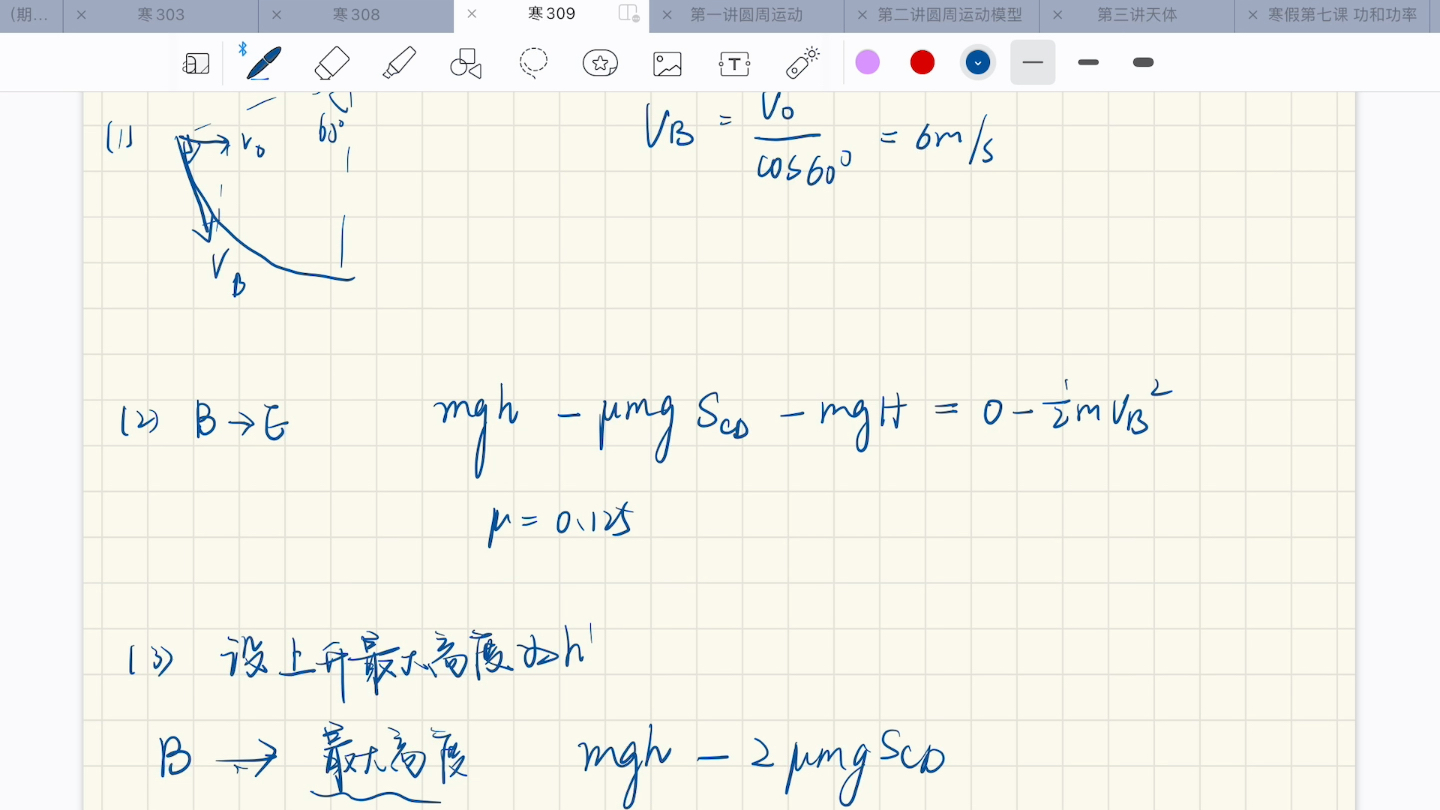 (期...
寒303
寒308
寒309
第一讲圆周运动
第二讲圆周运动模型
第三讲天体
寒假第七课 功和功率
60°
(1) v₀
V_B = V₀/cos60° = 6m/s
V_B
(2) B→E mgh - μmg S_CD - mgH = 0 - ½mV_B²
μ = 0.125
(3) 设上升最大高度为h'
B → 最大高度 mgh - 2μmgS_CD